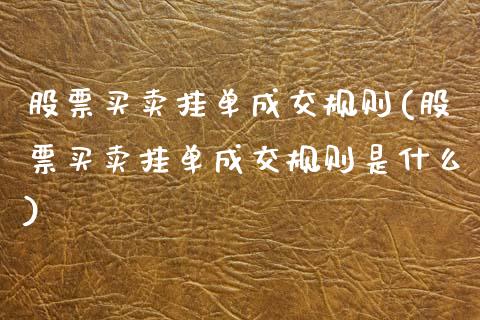 股票买卖挂单成交规则(股
票买卖挂单成交规则是什么
)